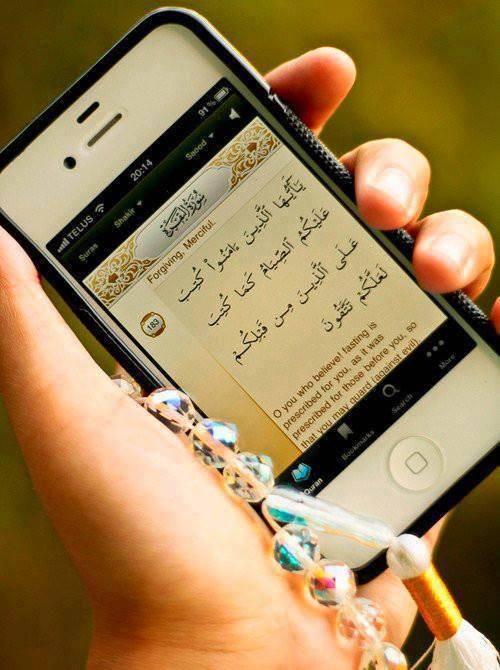 TELUS 20:14 91%
Suras Shakir Saood
سورة البقرة
Forgiving, Merciful.
183
يَٰٓأَيُّهَا ٱلَّذِينَ ءَامَنُوا۟ كُتِبَ
عَلَيْكُمُ ٱلصِّيَامُ كَمَا كُتِبَ
عَلَى ٱلَّذِينَ مِن قَبْلِكُمْ
لَعَلَّكُمْ تَتَّقُونَ
O you who believe! fasting is
prescribed for you, as it was
prescribed for those before you, so
that you may guard (against evil)
Quran Bookmarks Search More